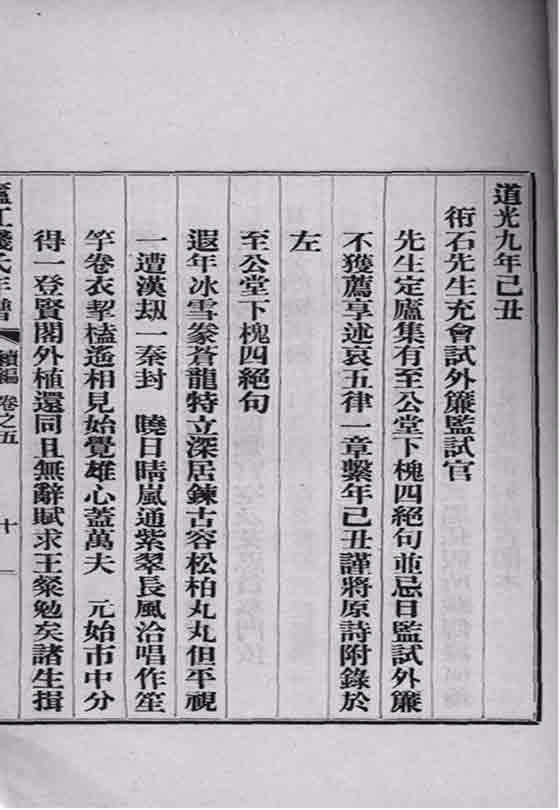 道光九年己丑
衎石先生充會試外簾監試官
先生定廬集有至公堂下槐四絕句並忌日監試外簾
不獲薦享述哀五律一章繫年己丑謹將原詩附錄於
左
至公堂下槐四絕句
遐年冰雪豢蒼龍特立深居鍊古容松柏丸丸但平視
一遭漢劫一秦封　曉日晴嵐通紫翠長風洽唱作笙
竽卷衣挈榼遙相見始覺雄心蓋萬夫　元始市中分
得一登賢閣外植還同且無辭賦求王粲勉矣諸生揖
廬江錢氏年譜　續編　卷之五　十